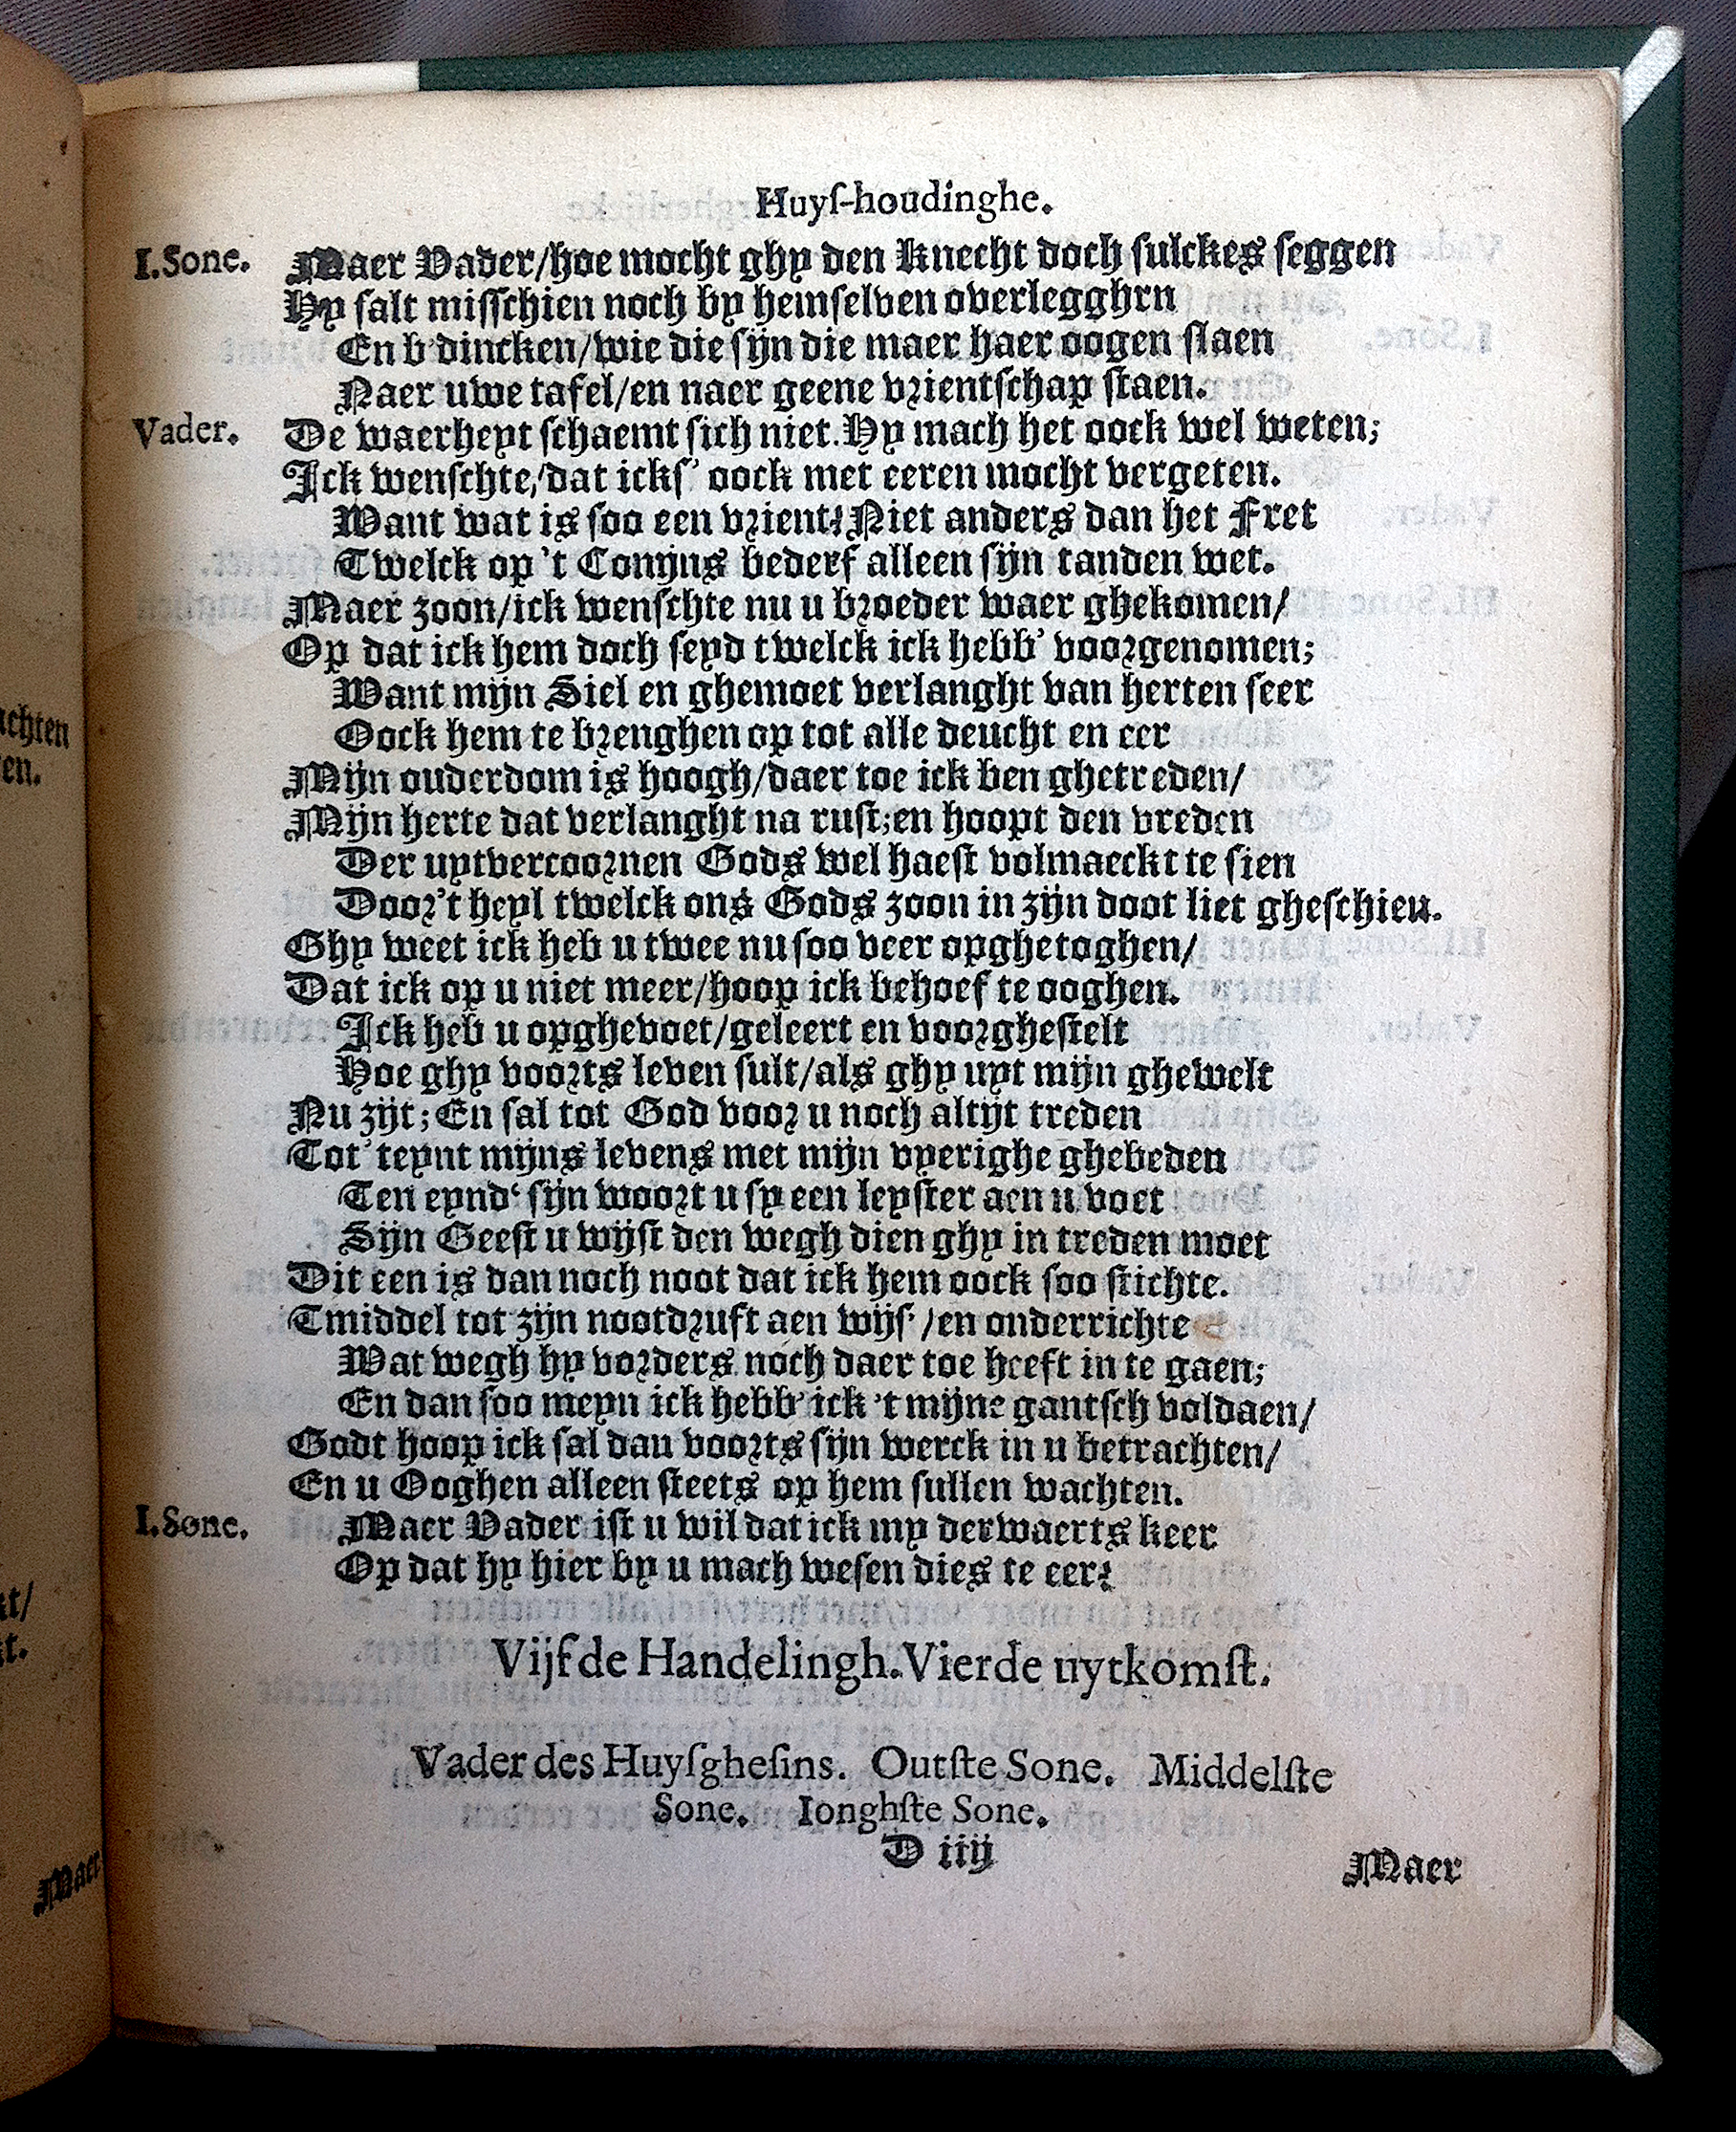 Huyſ-houdinghe.
I.Sone. Maer Vader/hoe mocht ghy den Knecht doch ſulckes ſeggen
Hy ſalt miſſchien noch by hemſelven overlegghrn
En b'dincken/wie die ſijn die maer haer oogen ſlaen
Naer uwe tafel/en naer geene vrientſchap ſtaen.
Vader. De waerheyt ſchaemt ſich niet. Hy mach het oock wel weten;
Ick wenſchte/dat ickſ' oock met eeren mocht vergeten.
Want wat is ſoo een vrient? Niet anders dan het Fret
Twelck op 't Conijns bederf alleen ſijn tanden wet.
Maer zoon/ick wenſchte nu u broeder waer ghekomen/
Op dat ick hem doch ſeyd twelck ick hebb' voorgenomen;
Want mijn Siel en ghemoet verlanght van herten ſeer
Oock hem te brenghen op tot alle deucht en eer
Mijn ouderdom is hoogh/daer toe ick ben ghetreden/
Mijn herte dat verlanght na ruſt;en hoopt den vreden
Der uytvercoornen Gods wel haeſt volmaeckt te ſien
Door't heyl twelck ons Gods zoon in zijn doot liet gheſchieu.
Ghy weet ick heb u twee nu ſoo veer opghetoghen/
Dat ick op u niet meer/hoop ick behoef te ooghen.
Ick heb u opghevoet/geleert en voorgheſtelt
Hoe ghy voorts leven ſult/als ghy uyt mijn ghewelt
Nu zijt; En ſal tot God voor u noch altijt treden
Tot' teynt mijns levens met mijn vyerighe ghebeden
Ten eynd' ſijn woort u ſy een leyſter aen u voet
Sijn Geeſt u wijſt den wegh dien ghy in treden moet
Dit een is dan noch noot dat ick hem oock ſoo ſtichte.
Tmiddel tot zijn nootdruft aen wijſ' /en onderrichte
Wat wegh hy vorders noch daer toe heeft in te gaen;
En dan ſoo meyn ick hebb' ick 't mijne gantſch voldaen/
Godt hoop ick ſal dau voorts ſijn werck in u betrachten/
En u Ooghen alleen ſteets op hem ſullen wachten.
I.Sone. Maer Vader iſt u wil dat ick my derwaerts keer
Op dat hy hier by u mach weſen dies te eer?
Vijfde Handelingh. Vierde uytkomſt.
Vader des Huyſgheſins. Outſte Sone. Middelſte
Sone. Ionghſte Sone.
D iiij
Maer